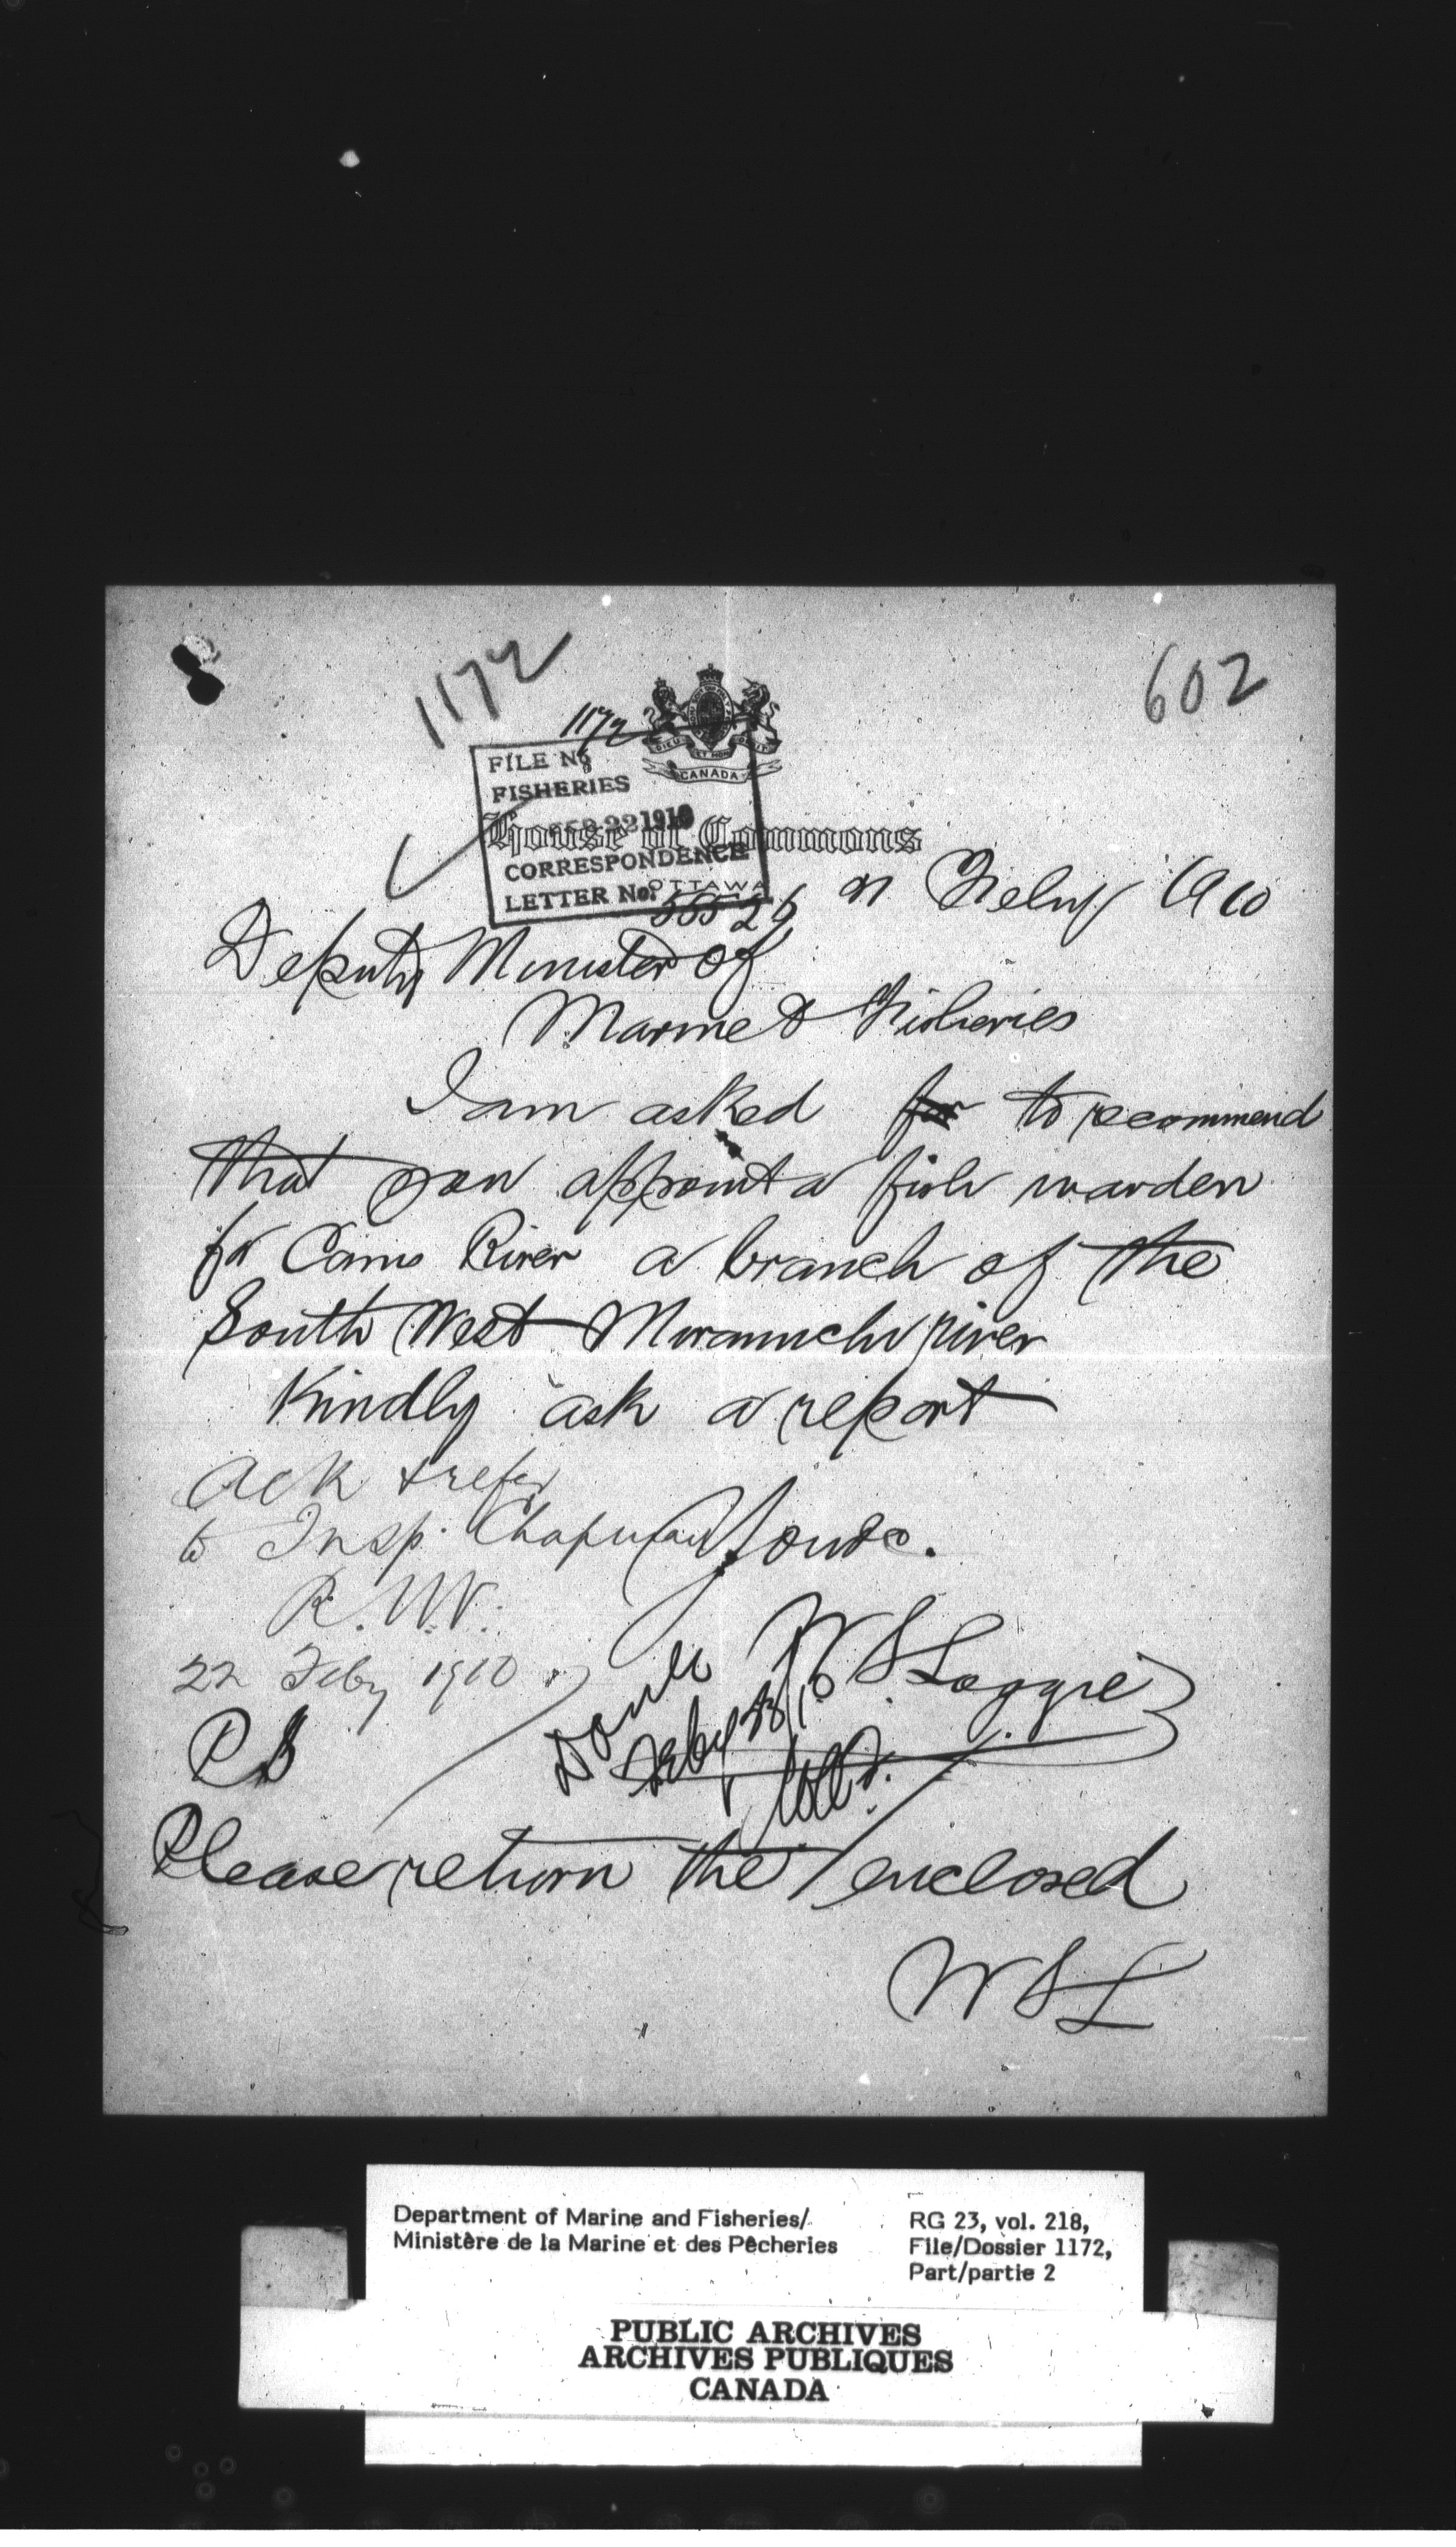 1172
602
1172
DIEU ET MON DROIT
CANADA
FILE No
FISHERIES
FEB 22 1910
House of Commons
CORRESPONDENCE
OTTAWA
LETTER No.
21 Feby 1910
Deputy Minister of
Marine & Fisheries
I am asked for to recommend
that you appoint a fish warden
for Cains River a branch of the
South West Miramichi river
Kindly ask a report
Ack & refer
to Insp. Chapman
Yours.
R. N. V.
22 Feby 1910
W S Loggie
Done
Feby 23/10
P S
Please return the enclosed
W S L
Department of Marine and Fisheries/
Ministère de la Marine et des Pêcheries
RG 23, vol. 218,
File/Dossier 1172,
Part/partie 2
PUBLIC ARCHIVES
ARCHIVES PUBLIQUES
CANADA